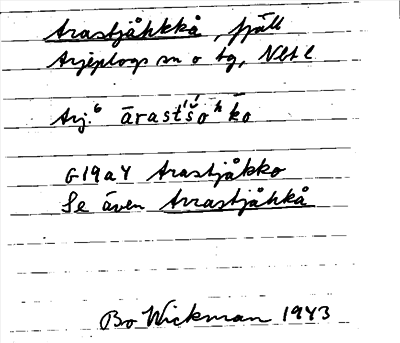 Arastjåhkkå, fjäll
Arjeplogs sn o tg, Nbt l
Arj.⁶ ārast́š́oʰk̄o
G19a4 Arastjåkko
Se även Arrastjåhkå
Bo Wickman 1943